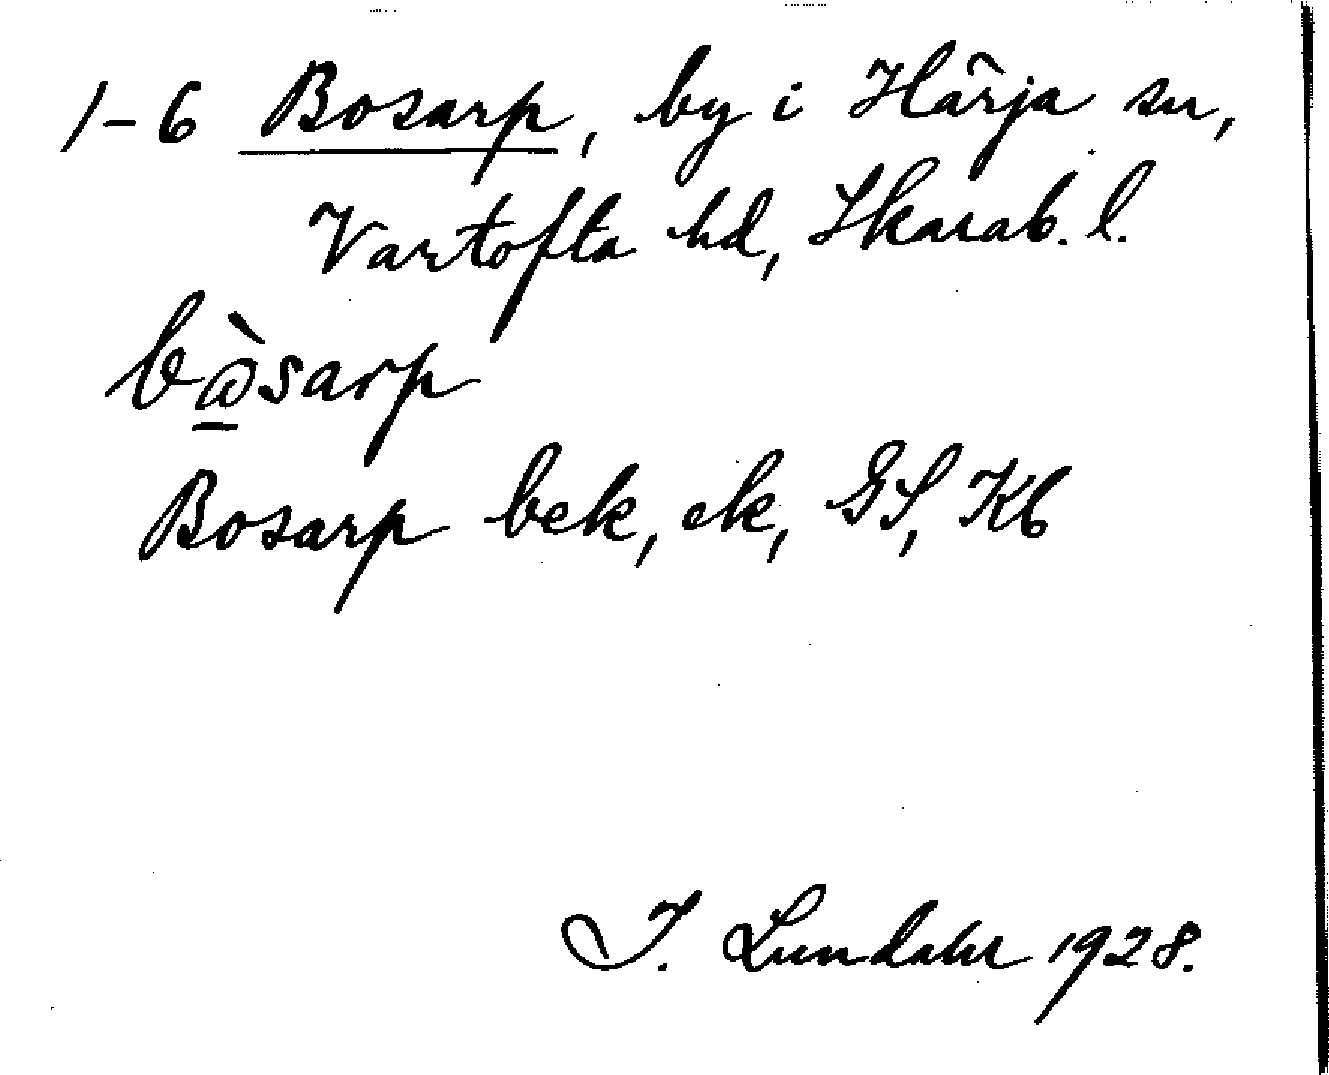 1-6 Bosarp, by i Härja sn,
Vartofta hd, Skarab. l.
bꞷ̠̀sarp
Bosarp bek, ek, GS, Kb
I. Lundahl 1928.